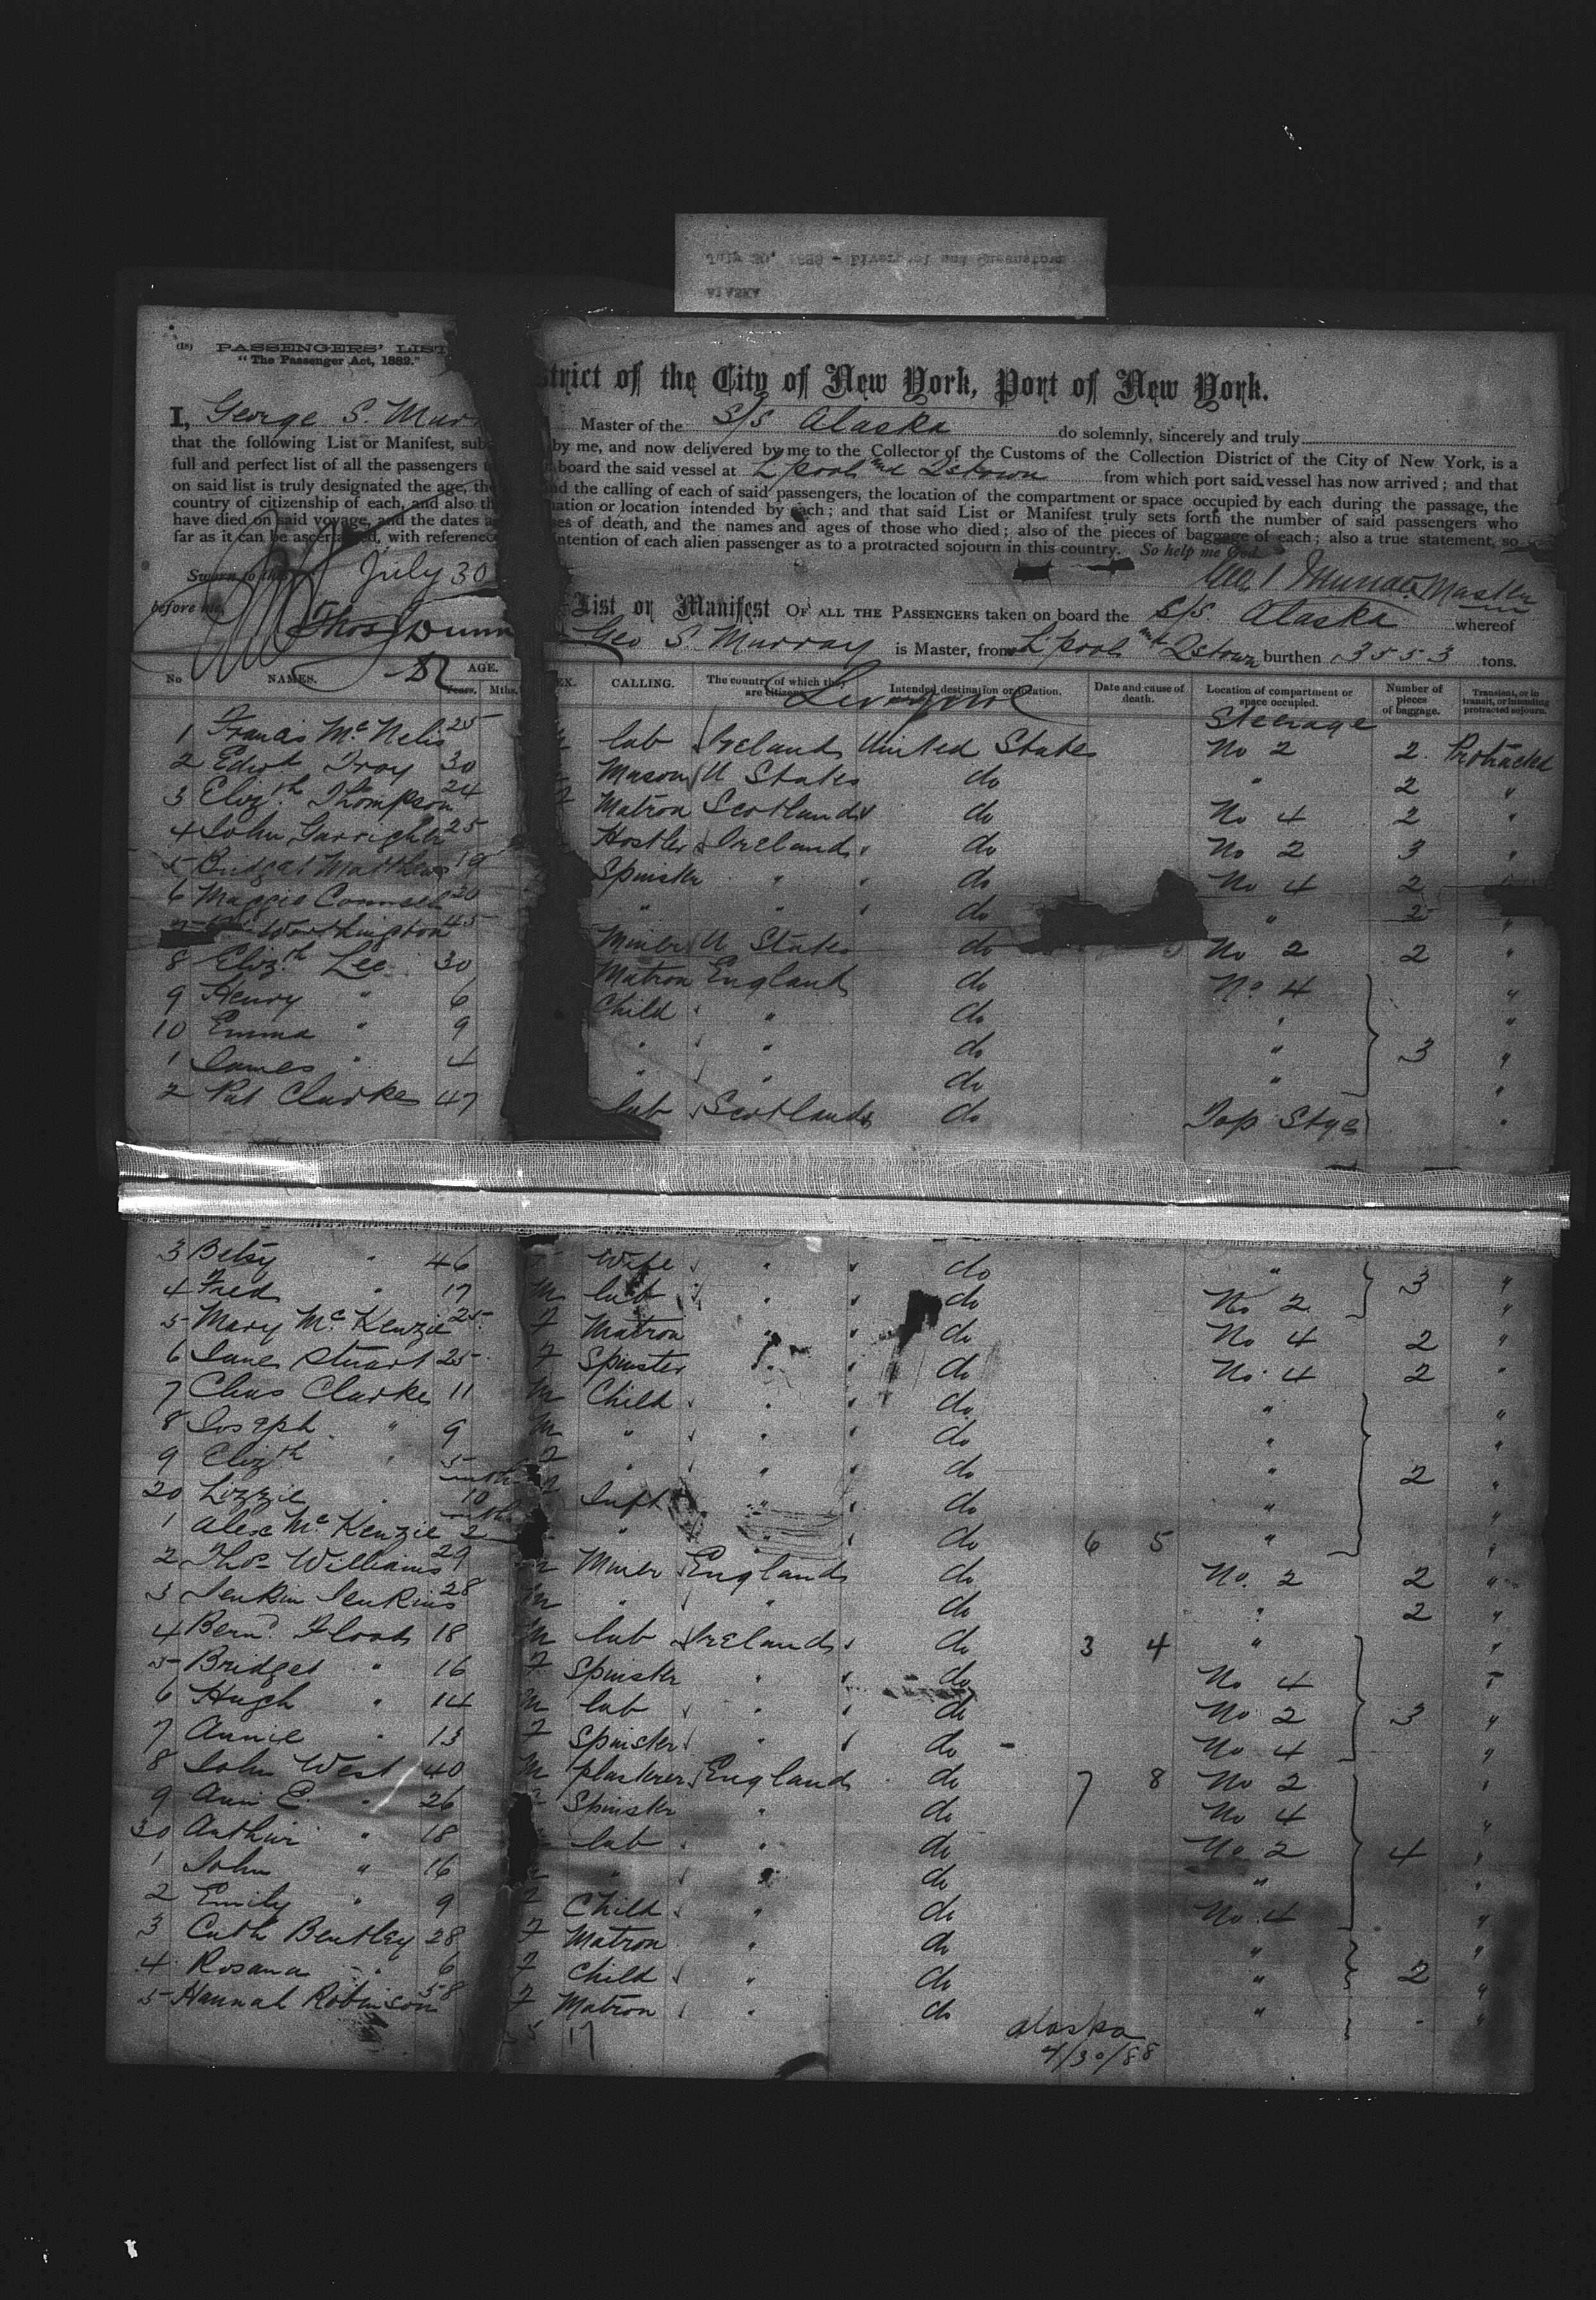 July 30, 1888 - Liverpool and Queenstown
ALASKA
(18) PASSENGERS' LIST
"The Passenger Act, 1882."
strict of the City of New York, Port of New York.
I, George S. Murr Master of the S/S Alaska do solemnly, sincerely and truly
that the following List or Manifest, sub by me, and now delivered by me to the Collector of the Customs of the Collection District of the City of New York, is a
full and perfect list of all the passengers board the said vessel at L'pool and Qstown from which port said vessel has now arrived; and that
on said list is truly designated the age, the nd the calling of each of said passengers, the location of the compartment or space occupied by each during the passage, the
country of citizenship of each, and also th nation or location intended by each; and that said List or Manifest truly sets forth the number of said passengers who
have died on said voyage, and the dates a ses of death, and the names and ages of those who died; also of the pieces of baggage of each; also a true statement, so
far as it can be ascertained, with reference intention of each alien passenger as to a protracted sojourn in this country. So help me God.
Sworn to this July 30 Geo. S. Murray Master
before me, Thos Dunn
List or Manifest OF ALL THE PASSENGERS taken on board the S/S. Alaska whereof
Geo S. Murray is Master, from L'pool and Qstown burthen 3553 tons.
No NAMES. AGE. Years. Mths. EX. CALLING. The country of which they are citizens. Intended destination or location. Date and cause of death. Location of compartment or space occupied. Number of pieces of baggage. Transient, or in transit, or intending protracted sojourn.
Liverpool Steerage
1 Francis McNelis 25 lab Ireland United States No 2 2 Protracted
2 Edwd 30 Mason U States do " 2 "
3 Elizth Thompson 24 Matron Scotland do No 4 2 "
4 John 25 Hostler Ireland do No 2 3 "
5 Bridget Matthews 19 Spinster " do No 4 2
6 Maggie Counsel 20 " " do " 2 "
7 Worthington 45 Miner U States do No 2 2 "
8 Elizth Lee 30 Matron England do No 4 "
9 Henry " 6 Child " do " "
10 Emma " 9 " " do " 3 "
1 James " 4 " " do " "
2 Pat Clarke 47 lab Scotland do Top Stge "
3 Betsy " 46 Wife " do " 3 "
4 Fred " 17 M lab " do No 2 "
5 Mary McKenzie 25 F Matron " do No 4 2 "
6 Jane Stuart 25 F Spinster " do No 4 2 "
7 Chas Clarke 11 M Child " do " "
8 Joseph " 9 M " " do " "
9 Elizth " 5 F " " do " 2 "
20 Lizzie " 10 mths Inft " do " "
1 Alex McKenzie 2 " " do 6 5 " "
2 Thos Williams 29 M Miner England do No. 2 2 "
3 Jenkin Jenkins 28 M " " do " 2 "
4 Bernd Floods 18 M lab Ireland do 3 4 " "
5 Bridget " 16 F Spinster " do No 4
6 Hugh " 14 M lab " do No 2 3 "
7 Annie " 13 F Spinster " do No 4 "
8 John West 40 M plasterer England do 7 8 No 2 "
9 Ann E " 26 Spinster " do No 4 "
30 Arthur " 18 lab " do No 2 4 "
1 John " 16 " " do " "
2 Emily " 9 F Child " do No 4 "
3 Cath Bentley 28 F Matron " do " "
4 Rosana " 6 F Child " do " 2 "
5 Hannah Robinson 58 F Matron " do " "
17
Alaska
7/30/88